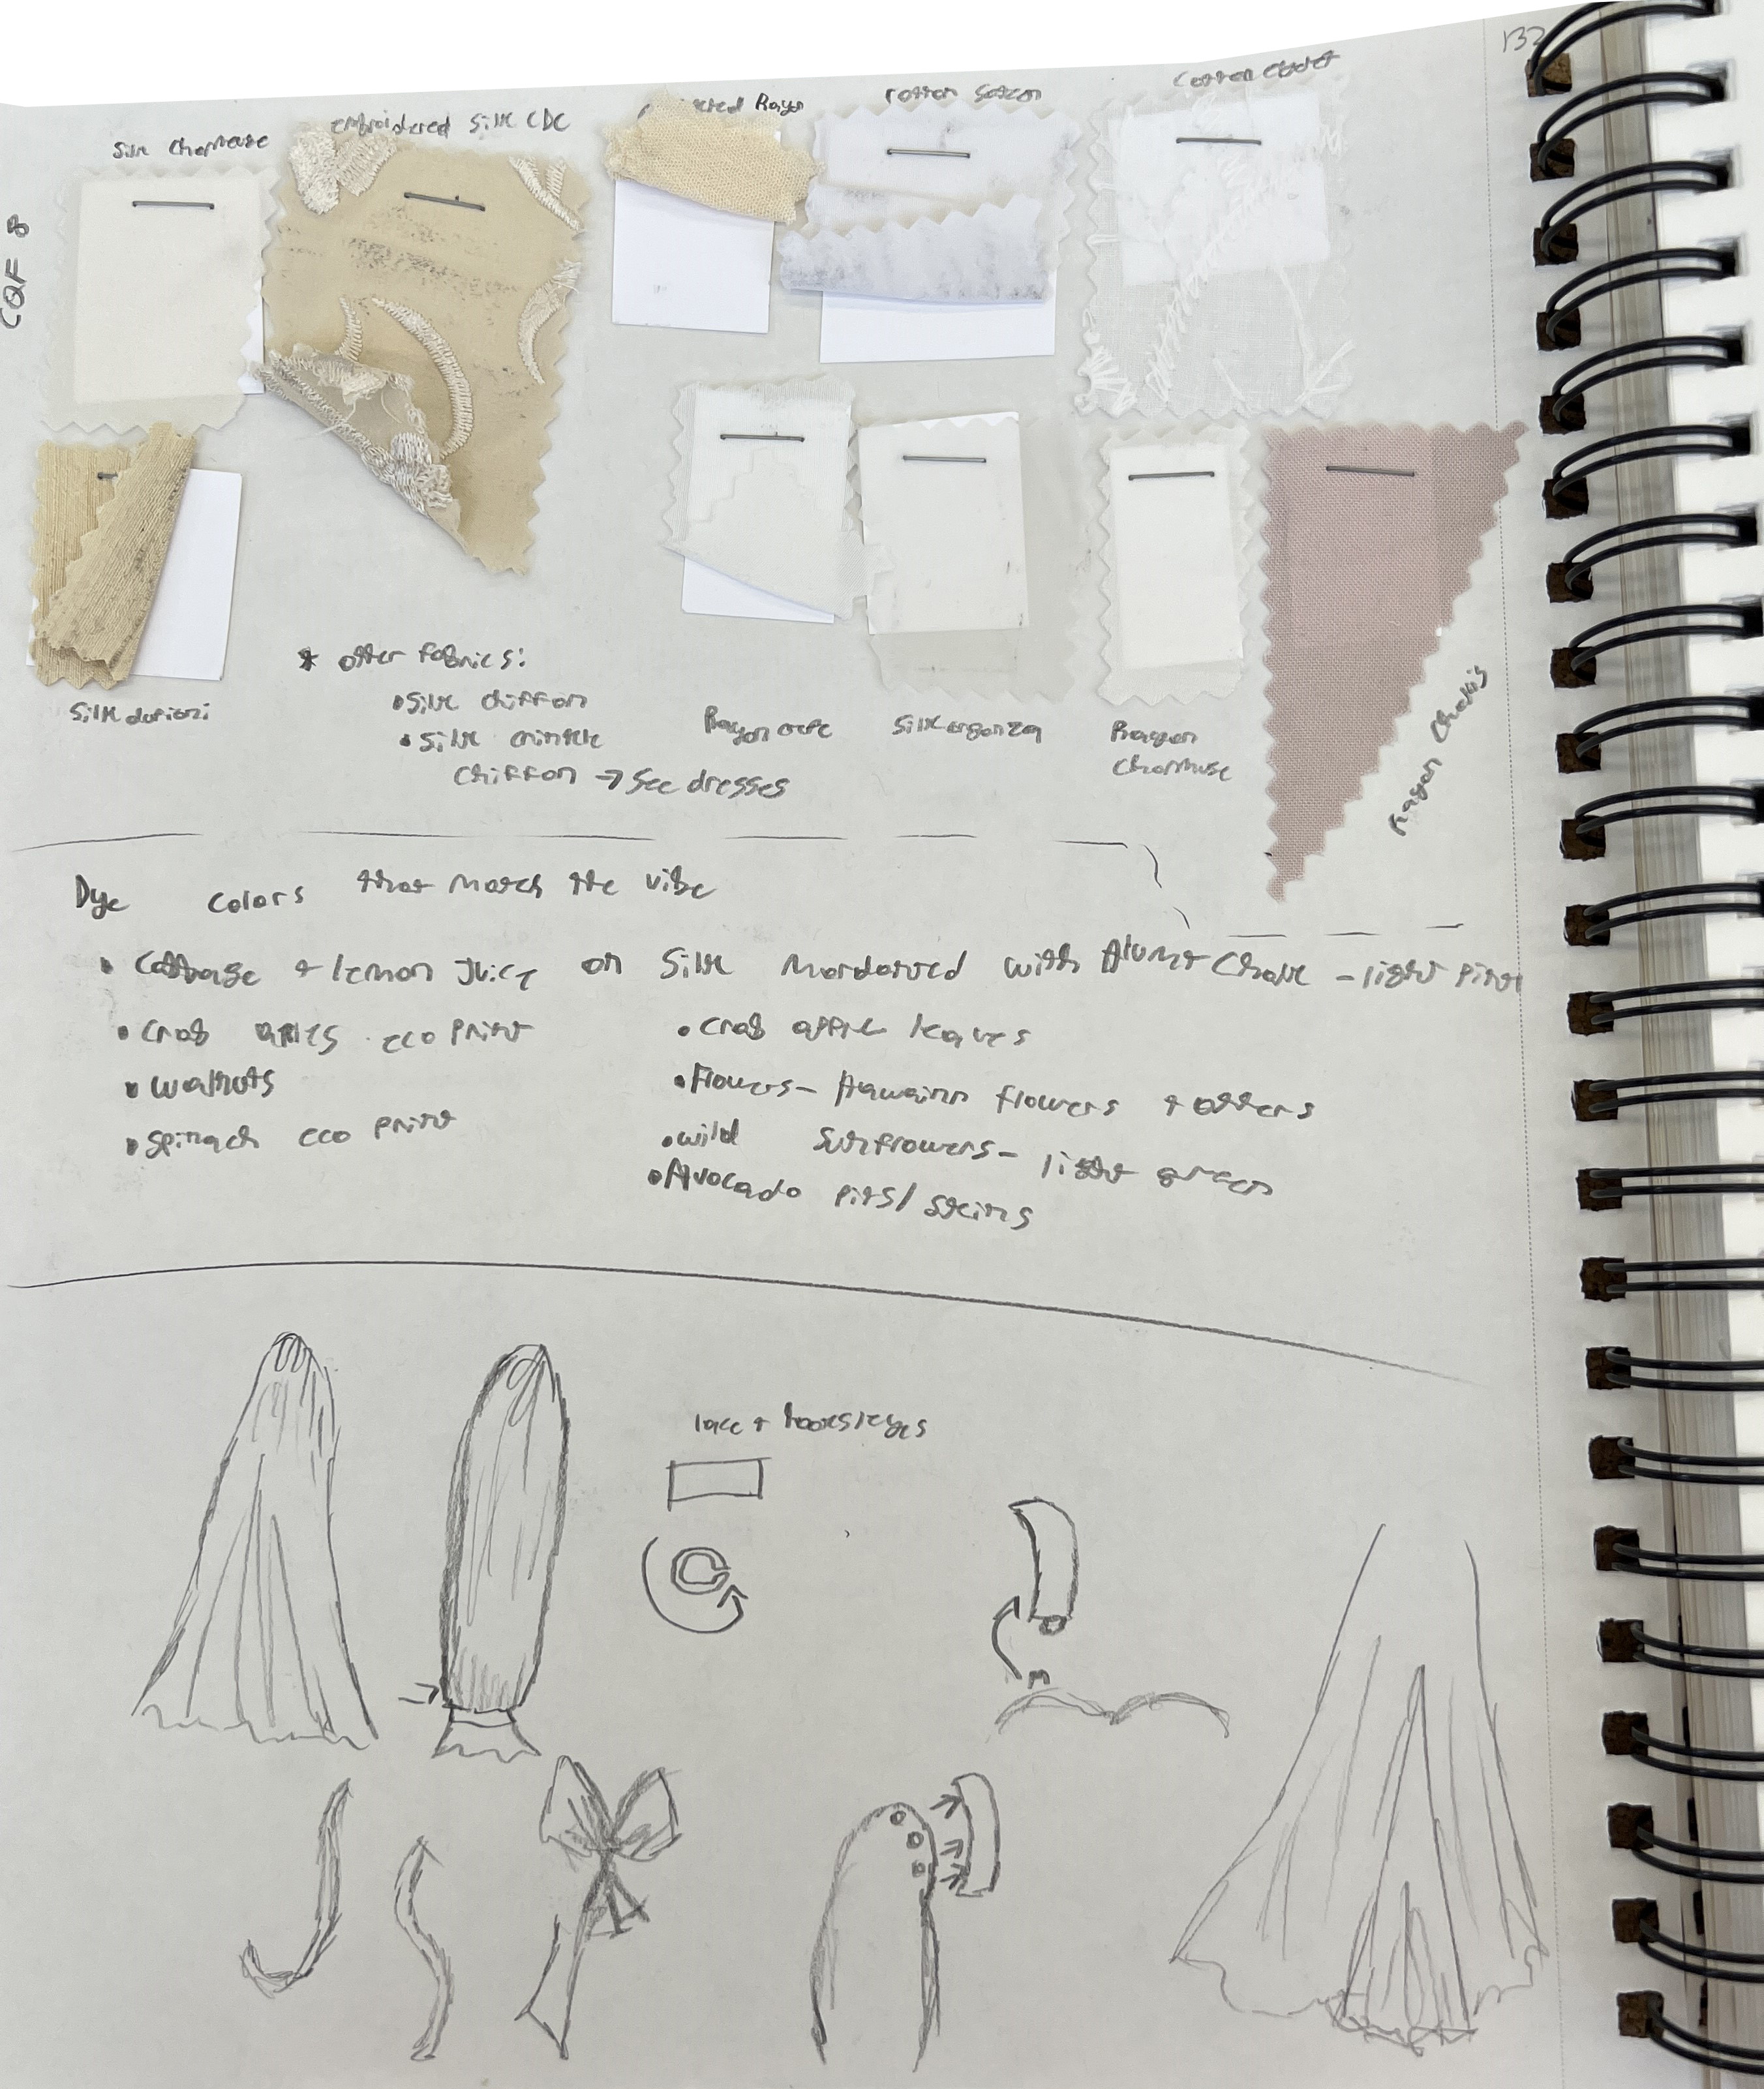 132
CQF 8
Silk Charmeuse
embroidered Silk CDC
Rayon
Cotton Sateen
Cotton eyelet
Silk dupioni
Rayon crepe
Silk organza
Rayon
Charmuse
Rayon Challis
* other fabrics:
• Silk chiffon
• Silk crinkle
chiffon → See dresses
Dye colors that match the vibe
• Cabbage + lemon Juice on Silk mordanted with Alum + Chalk - light pink
• Crab apples eco print
• walnuts
• Spinach eco print
• Crab apple leaves
• Flowers - Hawaiin flowers + others
• wild Sunflowers - light green
• Avocado pits/skins
lace + hooks/eyes